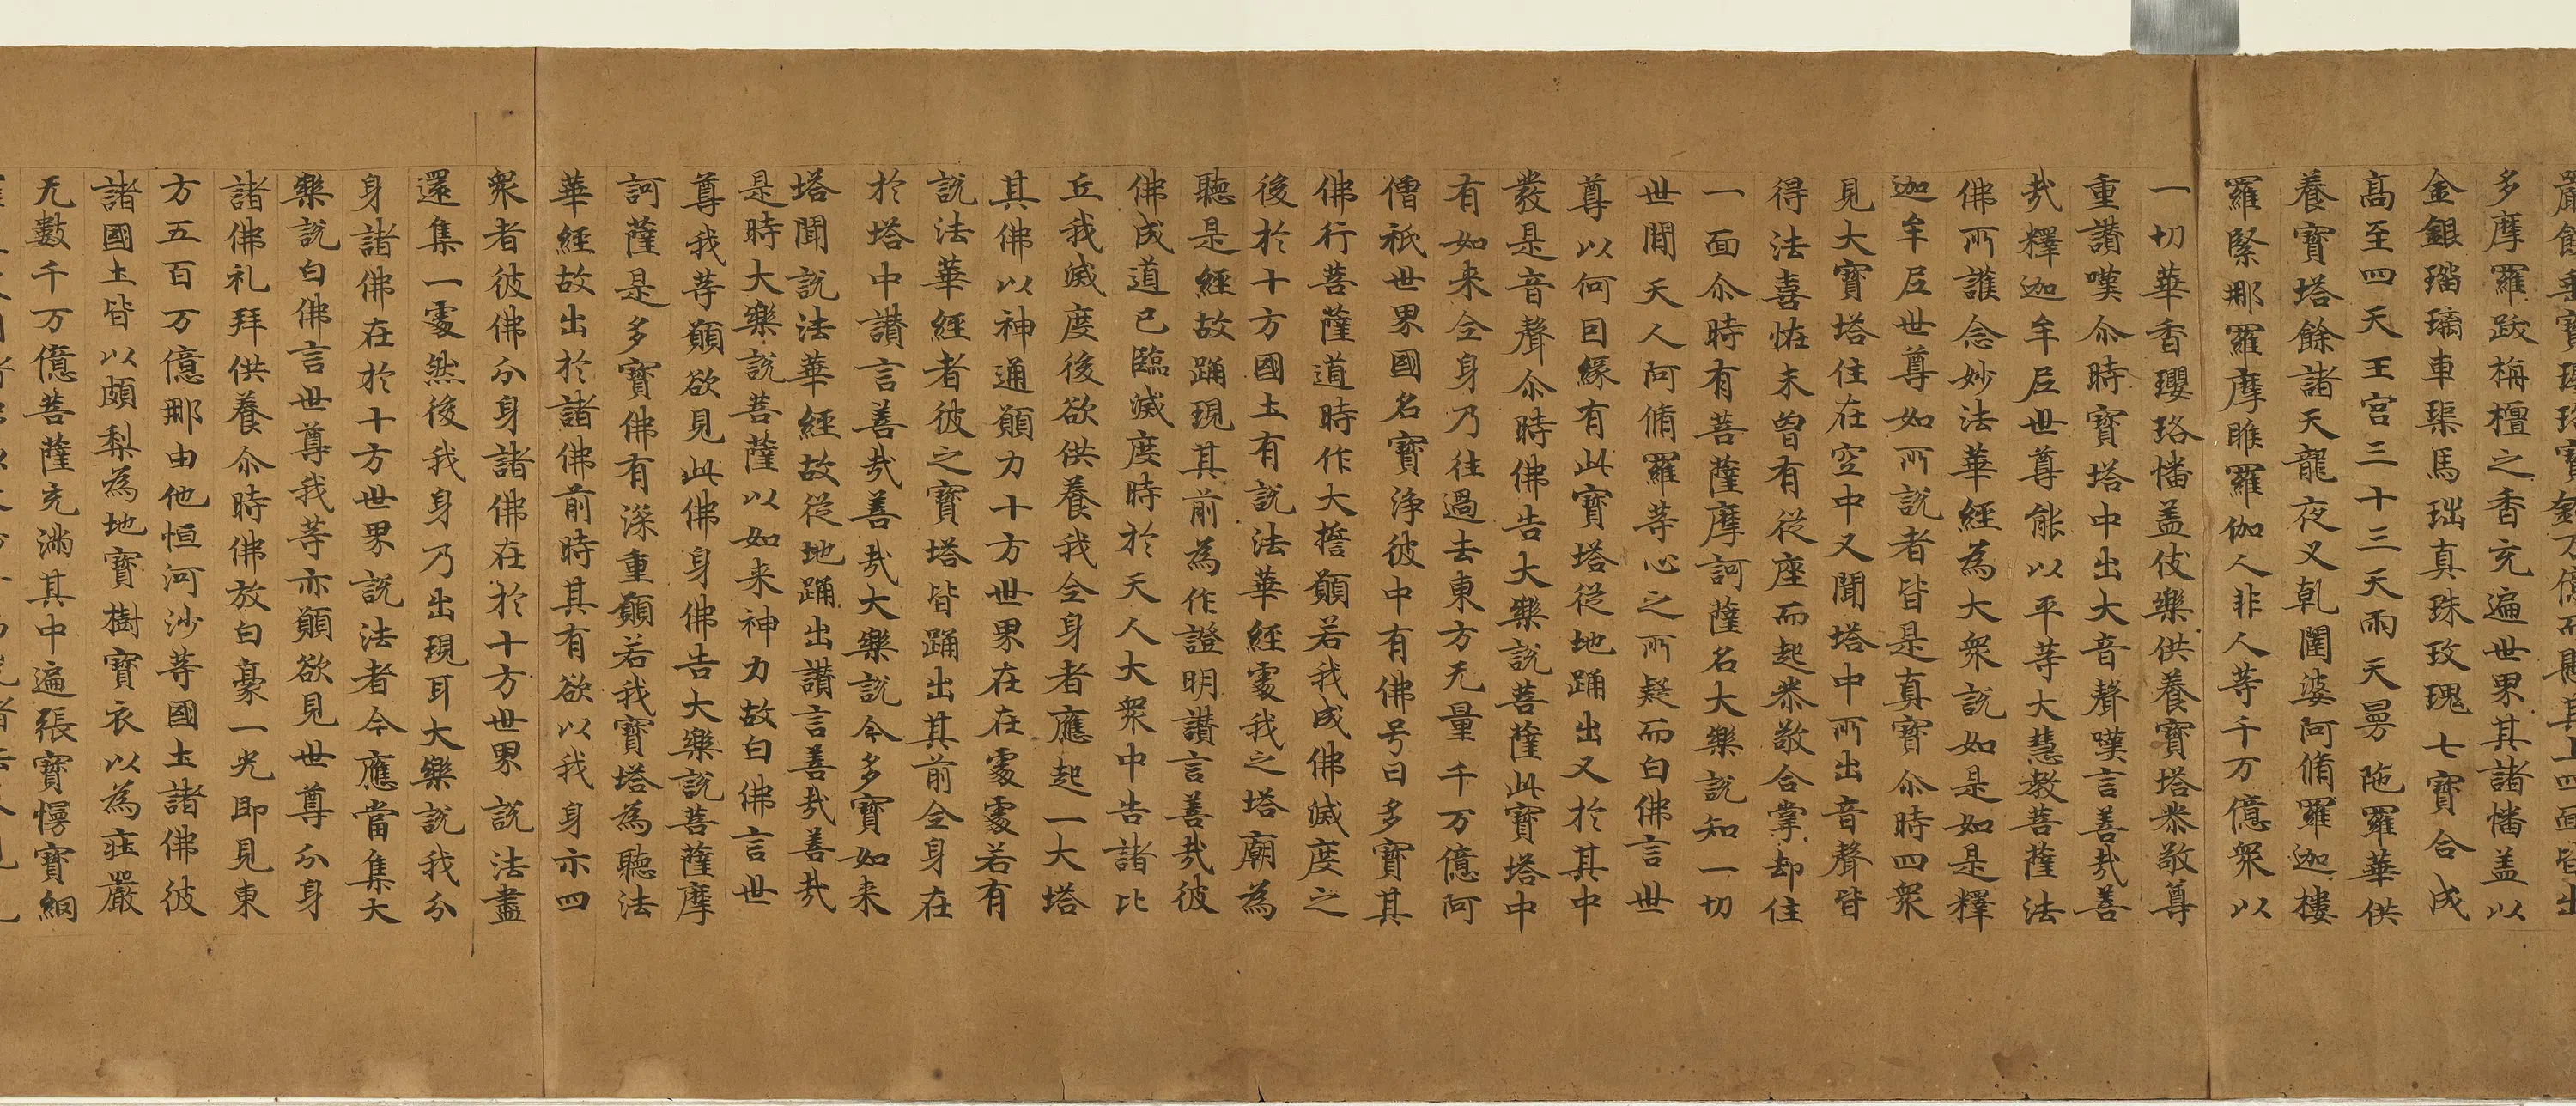 嚴飾垂寶瓔珞寶鈴万億而懸其上四面皆出
多摩羅跋栴檀之香充遍世界其諸幡盖以
金銀瑠璃車璖馬瑙真珠玫瑰七寶合成
高至四天王宮三十三天雨天曼陁羅華供
養寶塔餘諸天龍夜叉乹闥婆阿脩羅迦樓
羅緊那羅摩睺羅伽人非人等千万億衆以
一切華香瓔珞幡盖伎樂供養寶塔恭敬尊
重讃嘆尒時寶塔中出大音聲嘆言善㢤善
㢤釋迦牟尼世尊能以平等大慧教菩薩法
佛所護念妙法華經為大衆說如是如是釋
迦牟尼世尊如所說者皆是真寶尒時四衆
見大寶塔住在空中又聞塔中所出音聲皆
得法喜恠未曾有從座而起恭敬合掌却住
一面尒時有菩薩摩訶薩名大樂說知一切
世間天人阿脩羅等心之所疑而白佛言世
尊以何因緣有此寶塔從地踊出又於其中
發是音聲尒時佛告大樂說菩薩此寶塔中
有如来全身乃往過去東方无量千万億阿
僧祇世界國名寶淨彼中有佛号曰多寶其
佛行菩薩道時作大誓願若我成佛滅度之
後於十方國土有說法華經處我之塔廟為
聽是經故踊現其前為作證明讃言善㢤彼
佛成道已臨滅度時於天人大衆中告諸比
丘我滅度後欲供養我全身者應起一大塔
其佛以神通願力十方世界在在處處若有
說法華經者彼之寶塔皆踊出其前全身在
於塔中讃言善㢤善㢤大樂說今多寶如来
塔聞說法華經故從地踊出讃言善㢤善㢤
是時大樂說菩薩以如来神力故白佛言世
尊我等願欲見此佛身佛告大樂說菩薩摩
訶薩是多寶佛有深重願若我寶塔為聽法
華經故出於諸佛前時其有欲以我身示四
衆者彼佛分身諸佛在於十方世界說法盡
還集一處然後我身乃出現耳大樂說我分
身諸佛在於十方世界說法者今應當集大
樂說白佛言世尊我等亦願欲見世尊分身
諸佛礼拜供養尒時佛放白豪一光即見東
方五百万億那由他恒河沙等國土諸佛彼
諸國土皆以頗梨為地寶樹寶衣以為莊嚴
无數千万億菩薩充滿其中遍張寶幔寶網